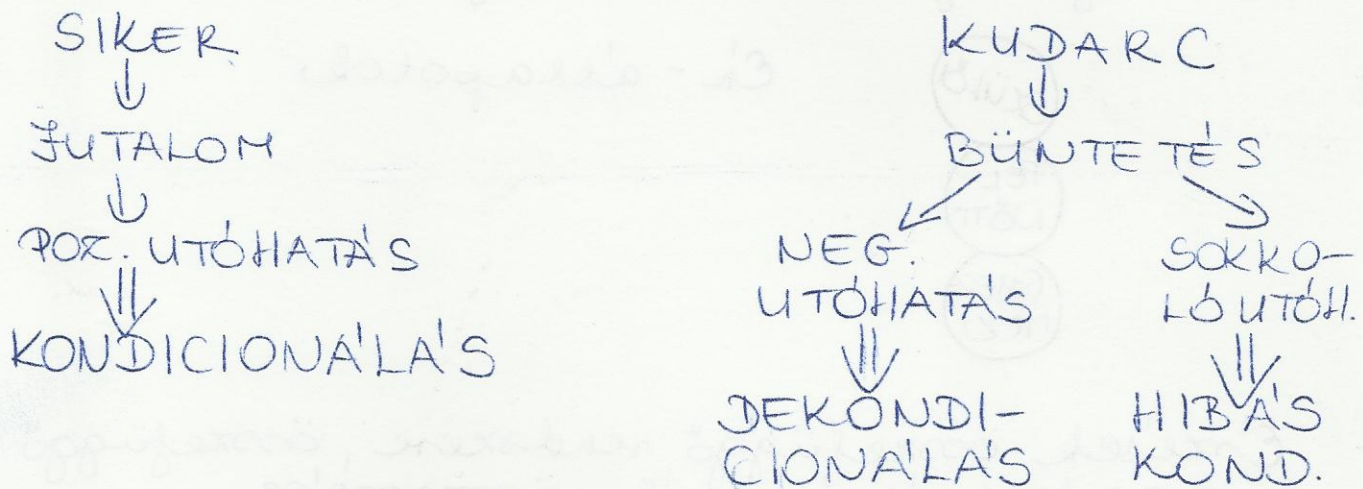 SIKER
JUTALOM
POZ. UTÓHATÁS
KONDICIONÁLÁS
KUDARC
BÜNTETÉS
NEG.
UTÓHATÁS
DEKONDI-
CIONÁLÁS
SOKKO-
LÓ UTÓH.
HIBÁS
KOND.